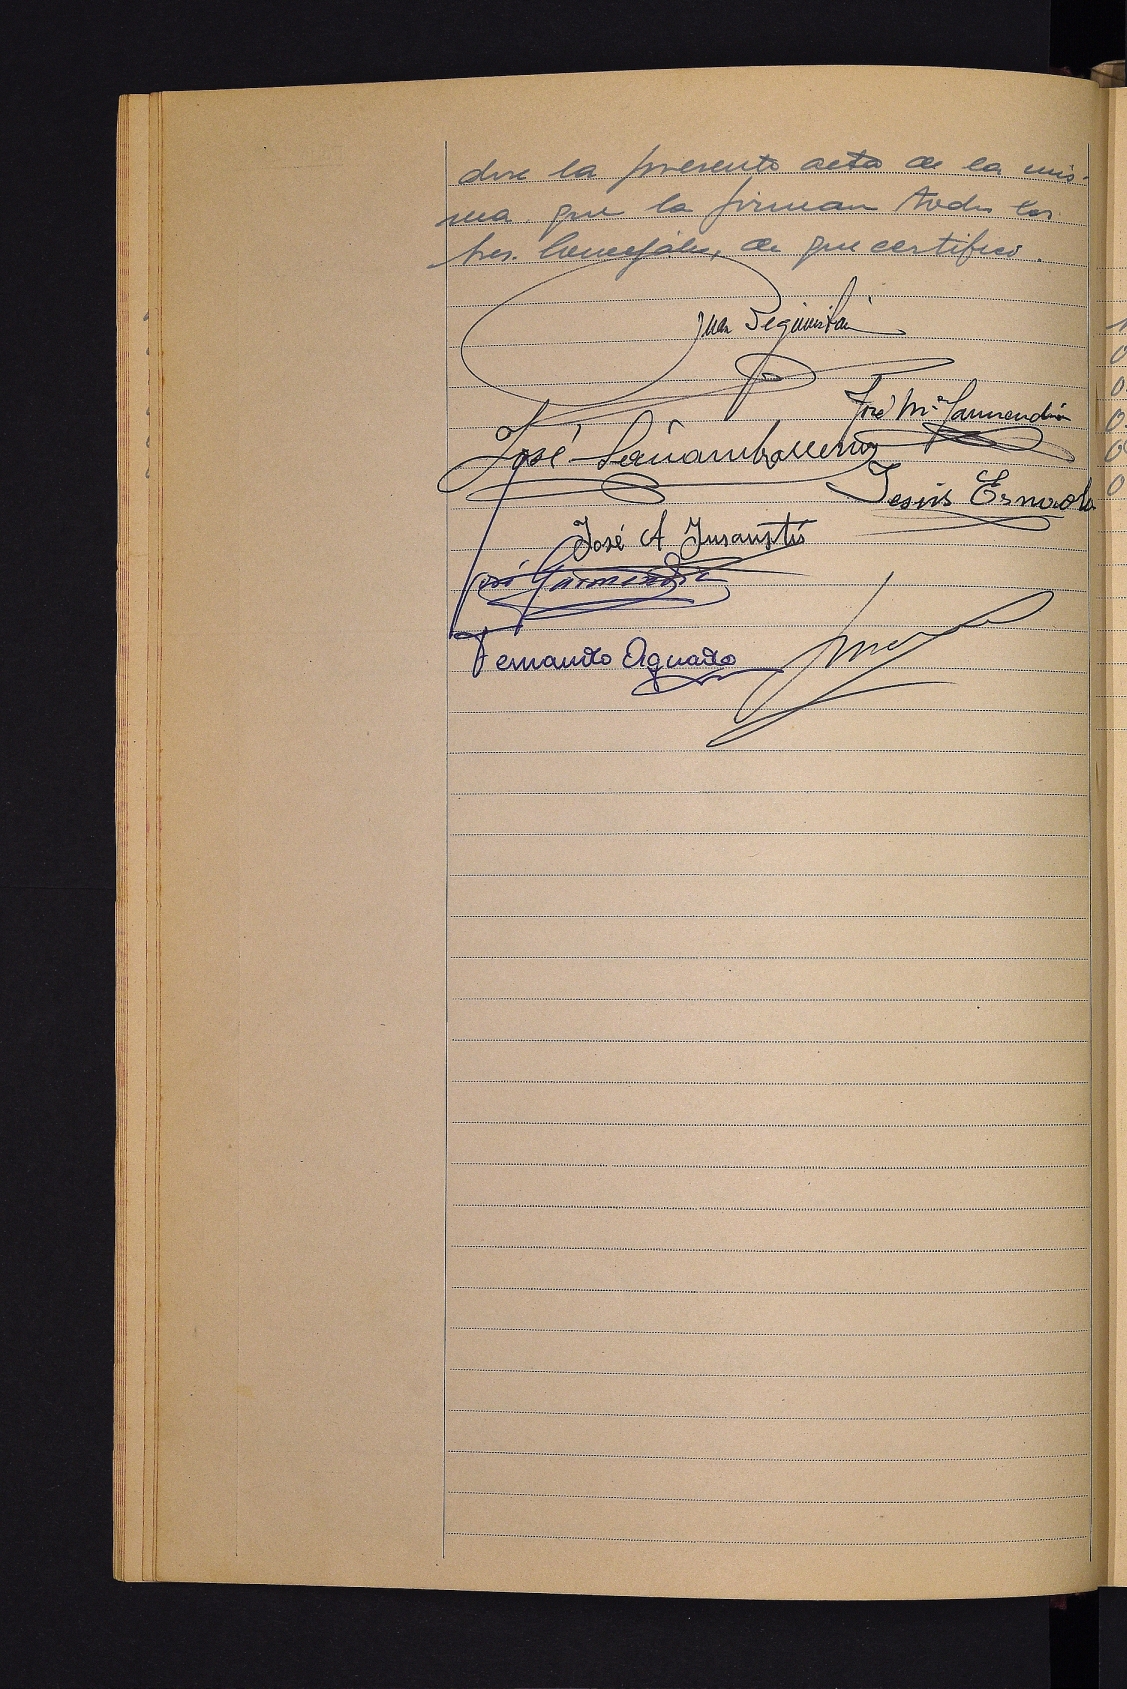 dose la presente acta de la mis-
ma que la firman todos los
Sres. Concejales, de que certifico.
Juan
José Mª Garmendia
José
Jesús Esnaola
José A Insausti
José Garmendia
Fernando Aguado